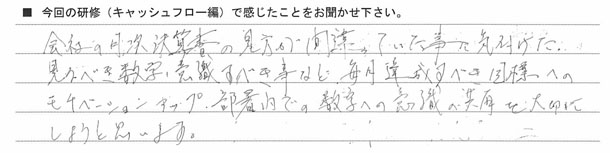 ■ 今回の研修（キャッシュフロー編）で感じたことをお聞かせ下さい。
会社の月次決算書の見方が間違っていた事に気付けた。
見るべき数字、意識すべき事など、毎月達成すべき目標への
モチベーションアップ、部署内での数字への意識の共有を大切に
しようと思います。